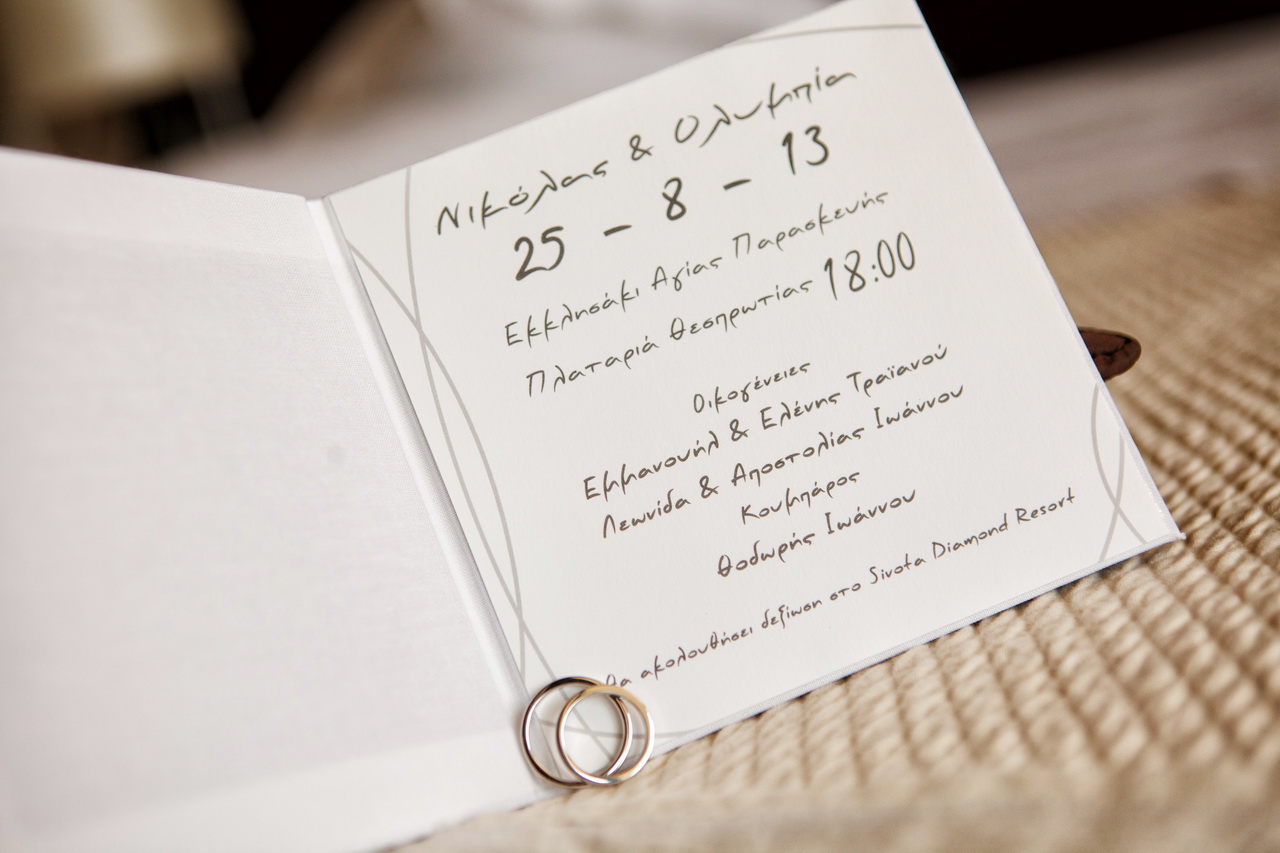 Νικόλας & Ολυμπία
25 - 8 - 13
Εκκλησάκι Αγίας Παρασκευής
Πλαταριά Θεσπρωτίας 18:00
Οικογένειες
Εμμανουήλ & Ελένης Τραϊανού
Λεωνίδα & Αποστολίας Ιωάννου
Κουμπάρος
Θοδωρής Ιωάννου
Θα ακολουθήσει δεξίωση στο Sivota Diamond Resort